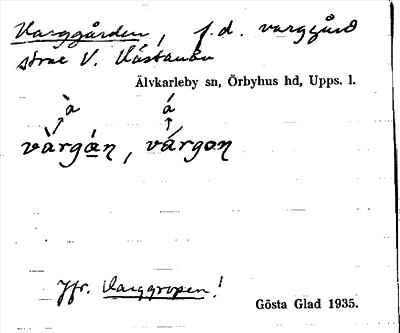 Varggården, f.d. varggård
strax V. Västanån
Älvkarleby sn, Örbyhus hd, Upps. l.
à á
vàrgán, várgon
Jfr. Varggropen!
Gösta Glad 1935.